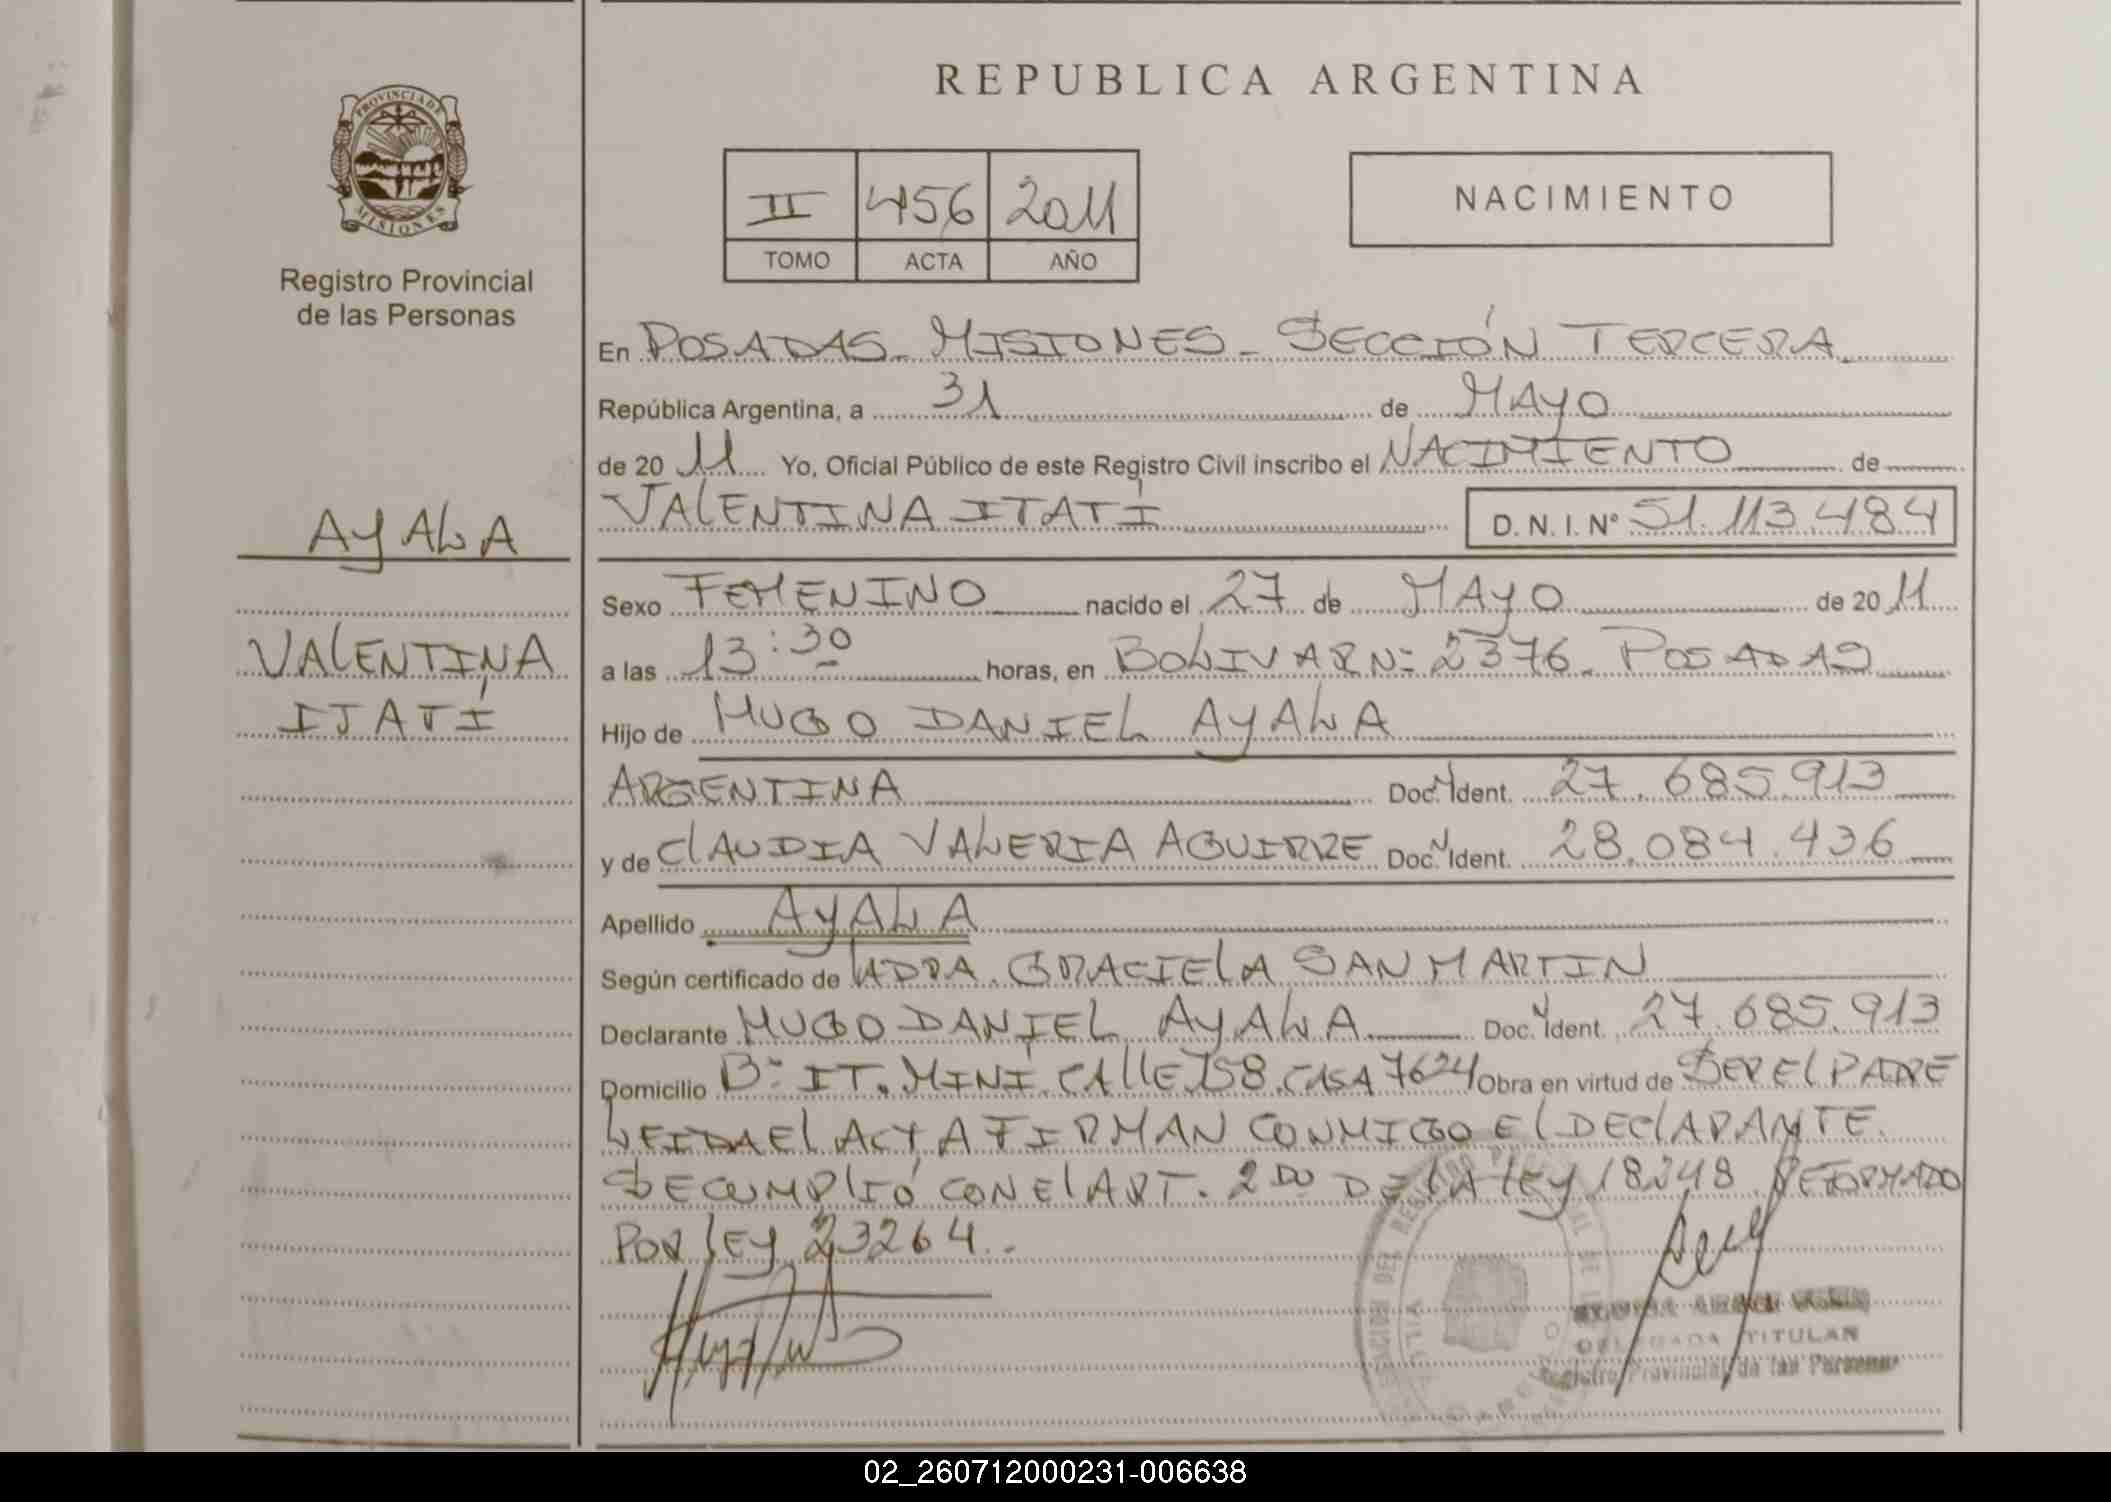 PROVINCIA DE
MISIONES
Registro Provincial
de las Personas
AYALA
VALENTINA
ITATÍ
REPUBLICA ARGENTINA
II 456 2011
TOMO ACTA AÑO
NACIMIENTO
En POSADAS - MISIONES - SECCIÓN TERCERA
República Argentina, a 31 de MAYO
de 2011 Yo, Oficial Público de este Registro Civil inscribo el NACIMIENTO de
VALENTINA ITATÍ D. N. I. Nº 51.113.484
Sexo FEMENINO nacido el 27 de MAYO de 2011
a las 13:30 horas, en BOLIVAR Nº 2376. POSADAS
Hijo de HUGO DANIEL AYALA
ARGENTINA Doc. Ident. 27.685.913
y de CLAUDIA VALERIA AGUIRRE Doc. Ident. 28.084.436
Apellido AYALA
Según certificado de GRACIELA SAN MARTIN
Declarante HUGO DANIEL AYALA Doc. Ident. 27.685.913
Domicilio Bº IT. MINÍ. CALLE 158. CASA 7624 Obra en virtud de SER EL PADRE
LEIDA EL ACTA FIRMAN CONMIGO EL DECLARANTE.
SE CUMPLIÓ CON EL ART. 2DO DE LA LEY 18248 REFORMADO
POR LEY 23264.
DELEGADA TITULAR
Registro Provincial de las Personas
02_260712000231-006638